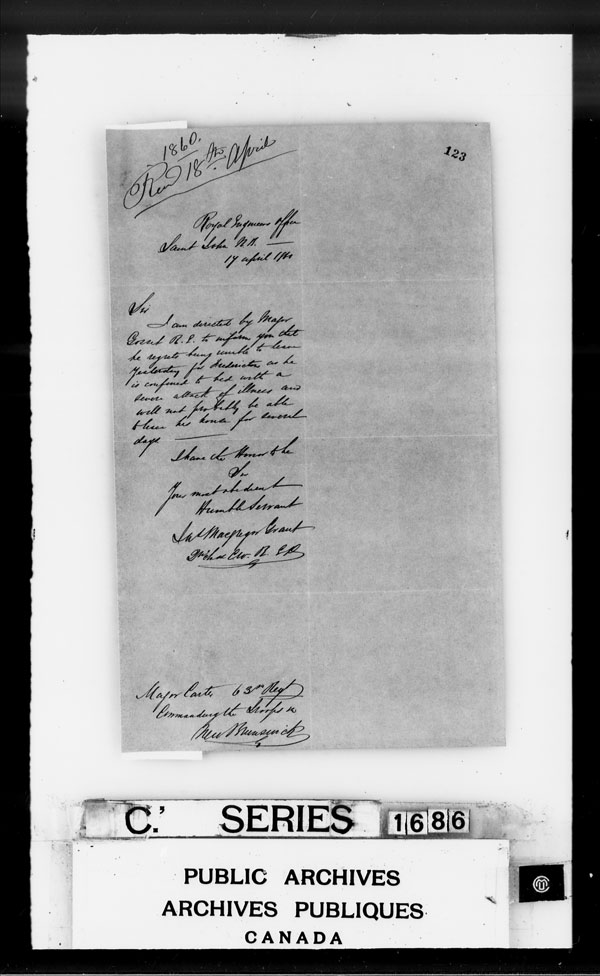 1860.
Recd 18th April
123
Royal Engineers Office
Saint John N.B.
17 April 1860
Sir
I am directed by Major
R.E. to inform you that
he regrets being unable to leave
Yesterday for Fredericton as he
is confined to bed with a
severe attack of illness and
will not probably be able
to leave his house for several
days
I have the Honor to be
Sir
Your most obedient
Humble Servant
Macgregor Grant
R. E. D
Major Carter 63rd Regt
Commanding the Troops in
New Brunswick
C.' SERIES 1686
PUBLIC ARCHIVES
ARCHIVES PUBLIQUES
CANADA